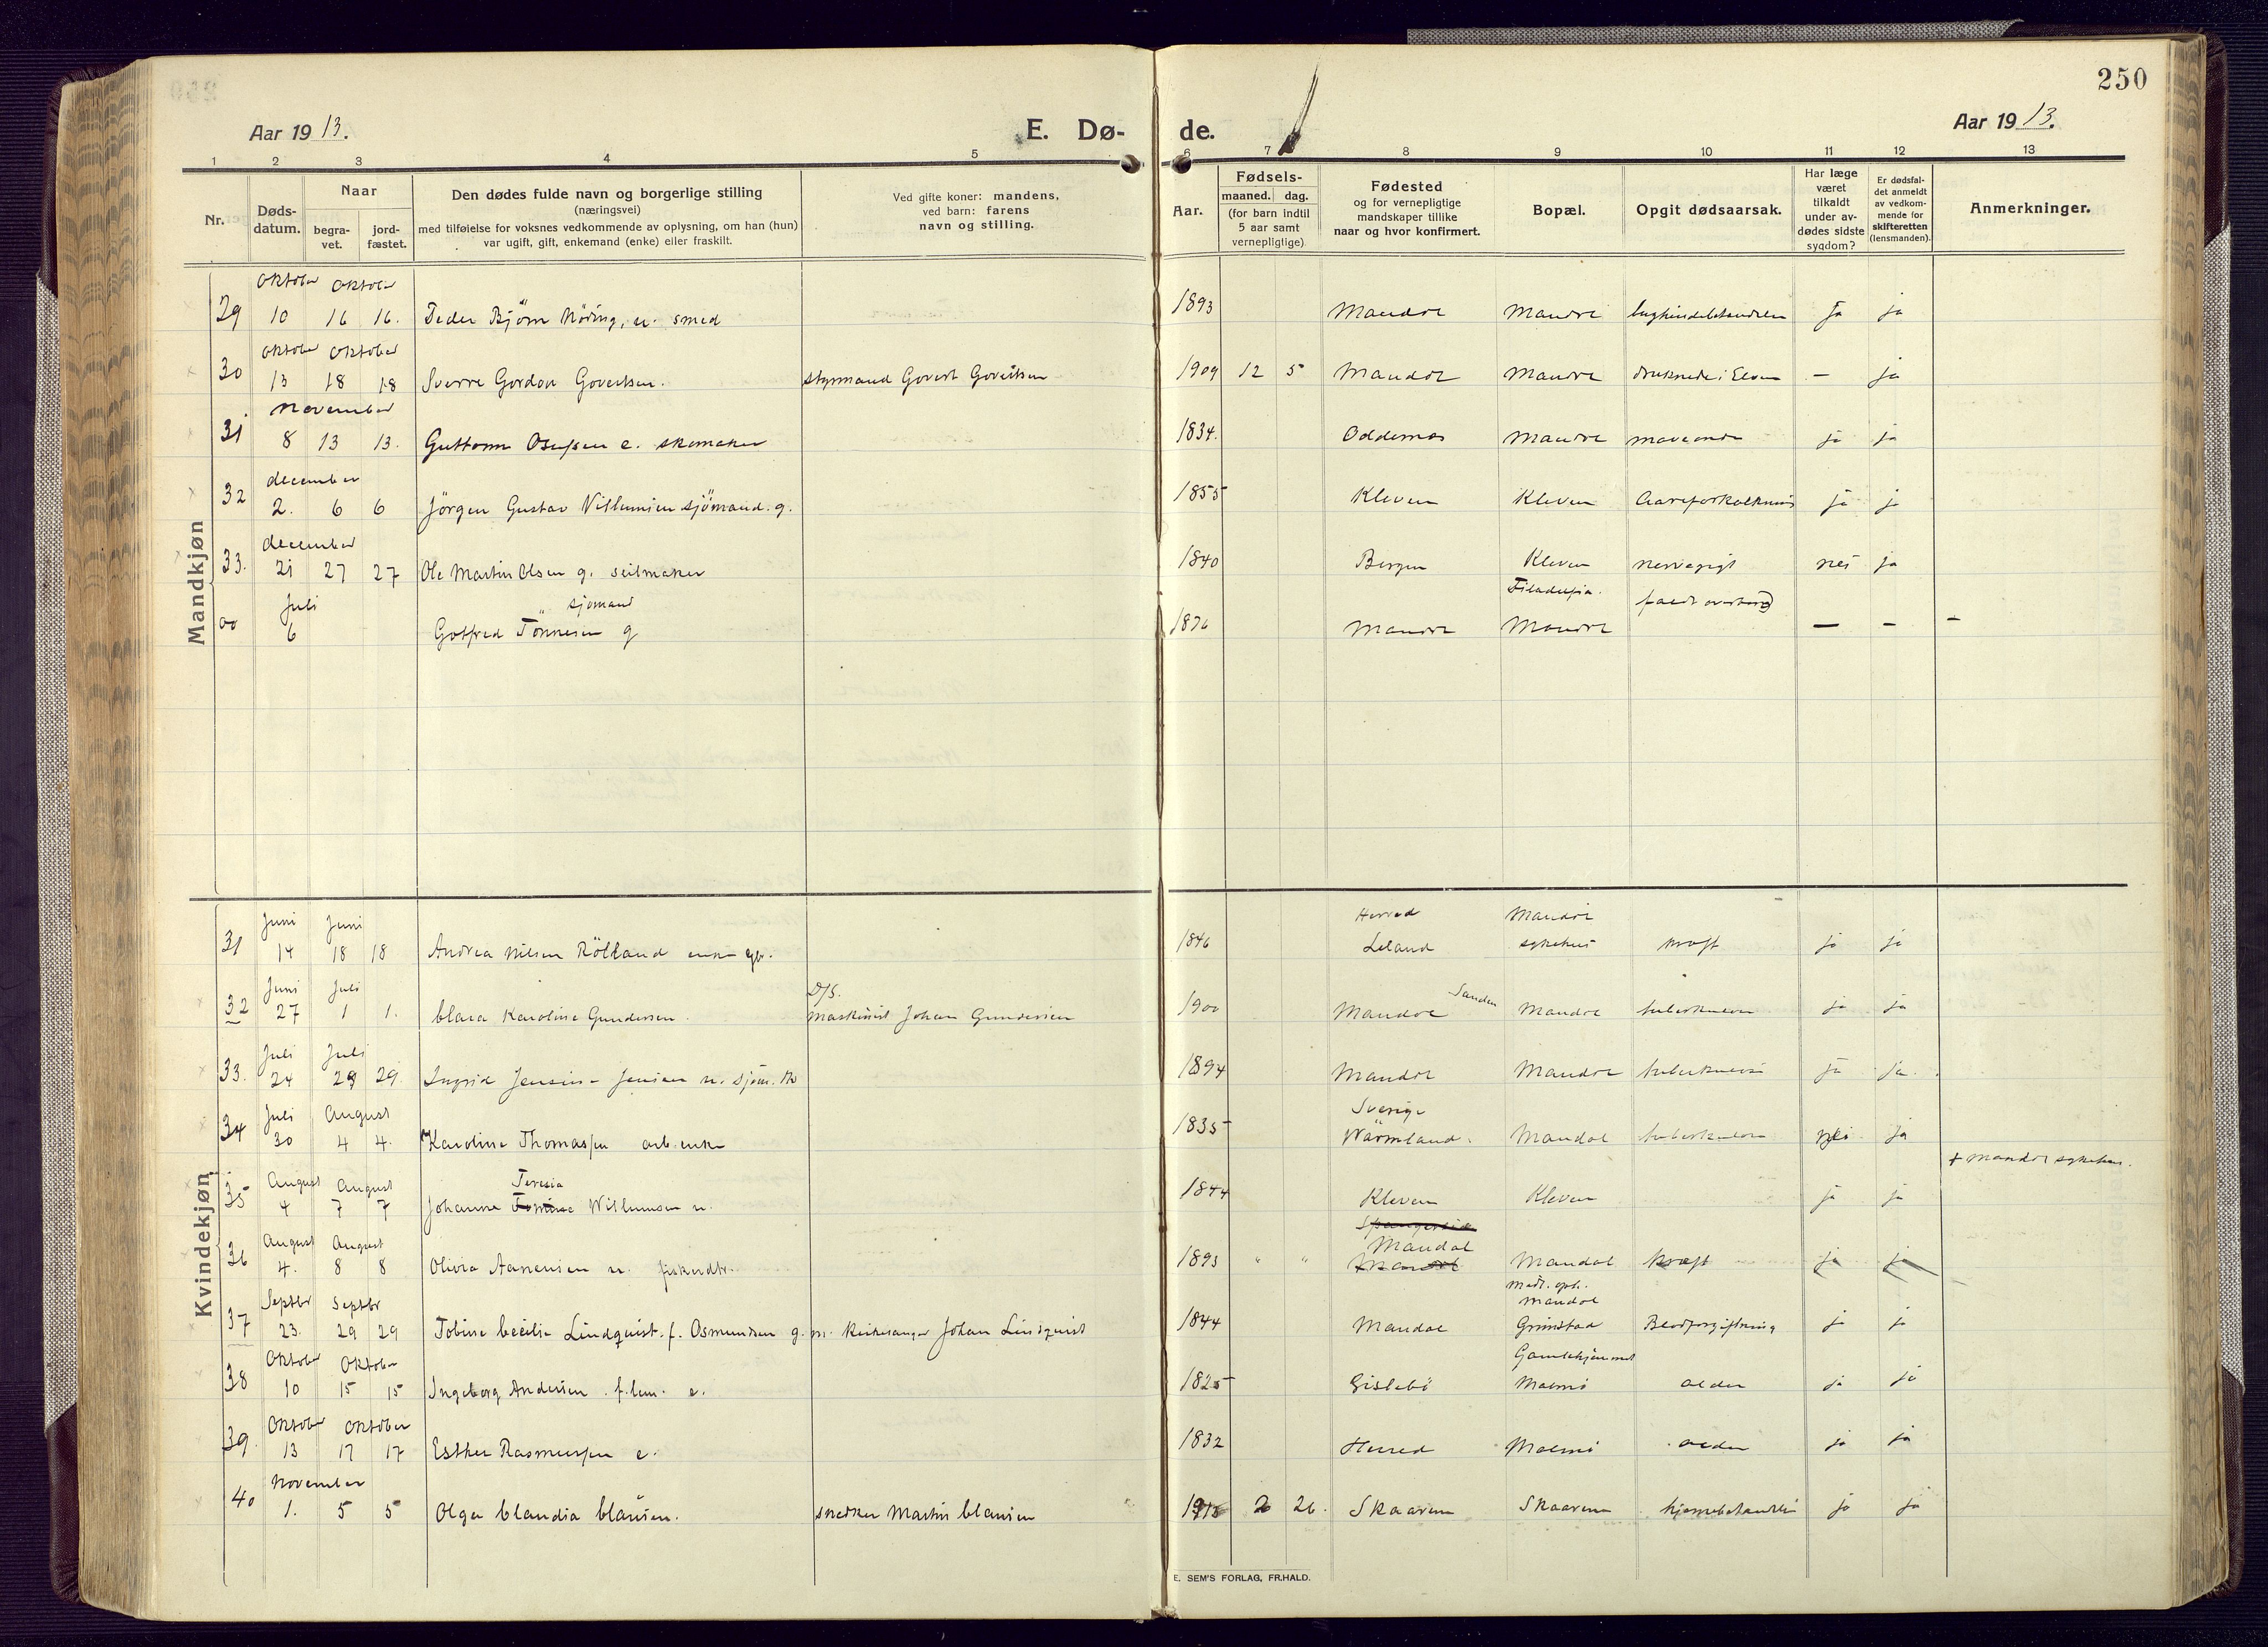 250
Aar 1913.
E. Dø-
de.
Aar 1913.
1 2 3 4 5 6 7 8 9 10 11 12 13
Nr.
Døds-
datum.
Naar
begra-
vet.
jord-
fæstet.
Den dødes fulde navn og borgerlige stilling
(næringsvei)
med tilføielse for voksnes vedkommende av oplysning, om han (hun)
var ugift, gift, enkemand (enke) eller fraskilt.
Ved gifte koner: mandens,
ved barn: farens
navn og stilling.
Aar.
Fødsels-
maaned. dag.
(for barn indtil
5 aar samt
vernepligtige)
Fødested
og for vernepligtige
mandskaper tillike
naar og hvor konfirmert.
Bopæl.
Opgit dødsaarsak.
Har læge
været
tilkaldt
under av-
dødes sidste
sygdom?
Er dødsfal-
det anmeldt
av vedkom-
mende for
skifteretten
(lensmanden).
Anmerkninger.
Mandkjøn
oktober oktober
29 10 16 16. Peder Bjørn Nöding, u. smed 1893 Mandal Mandal ja ja
oktober oktober
30 13 18 18 Sverre Gordon Govertsen. styrmand Govert Govertsen 1909 12 5 Mandal Mandal druknede i Elven — ja
november
31 8 13 13. Guttorm Osufsen e. skomaker 1834. Oddernes Mandal maveonde ja ja
december
32 2. 6 6 Jörgen Gustav Villumsen sjömand. g. 1855 Kleven Kleven Aareforkalkning ja ja
december
33. 21 27 27 Ole Martin Olsen g. seilmaker 1840 Bergen Kleven nervegigt nei ja
juli sjømand Filadelfia. faldt overbord
00 6 Gotfred Tönnesen g 1876 Mandal Mandal — — —
Kvindekjøn
Juni Juni Herred Mandal
31 14 18 18 Andrea Nilsen Rölland enke 1846 Leland sykehus kræft ja ja
Juni Juli D/S. Sanden
32 27 1 1. Clara Karoline Gundersen. maskinist Johan Gundersen 1900 Mandal Mandal tuberkulose ja ja
Juli Juli
33. 24 29 29. Ingrid Jensine Jensen u. sjöm. 1894 Mandal Mandal tuberkulose ja ja.
Juli August Sverige
34 30 4 4. Karoline Thomassen arb.enke 1835 Wärmland. Mandal tuberkulose nei ja
August August Teresia + Mandal sykehus.
35 4 7 7 Johanne Willumsen u. 1844 Kleven Kleven ja ja
August August Spangereid Mandal
36 4. 8 8 Olivia Aanensen u. fiskerdtr. 1893 " " Mandal Mandal kræft ja ja
Septbr Septbr midl. oph. Mandal
37 23. 29 29 Tobine Cecilie Lindquist. f. Osmundsen g. m. Kirkesanger Johan Lindquist 1844 Mandal Grimstad Blodforgiftning ja ja
Oktober Oktober Gamlehjemmet
38 10 15 15 Ingeborg Andersen . f.lem. e. 1825 Gislebö Malmö alder ja ja
Oktober Oktober
39. 13 17 17 Esther Rasmussen e. 1832 Herred Malmö alder ja ja
november
40 1. 5 5 Olga Claudia Clausen. snedker Martin Clausen 1913 2 26. Skaaren Skaaren ja ja
E. SEM'S FORLAG, FR.HALD.